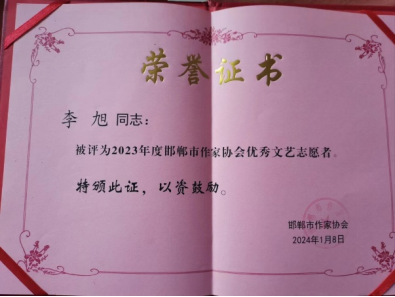 荣誉证书
李旭同志：
被评为2023年度邯郸市作家协会优秀文艺志愿者。
特颁此证，以资鼓励。
邯郸市作家协会
2024年1月8日